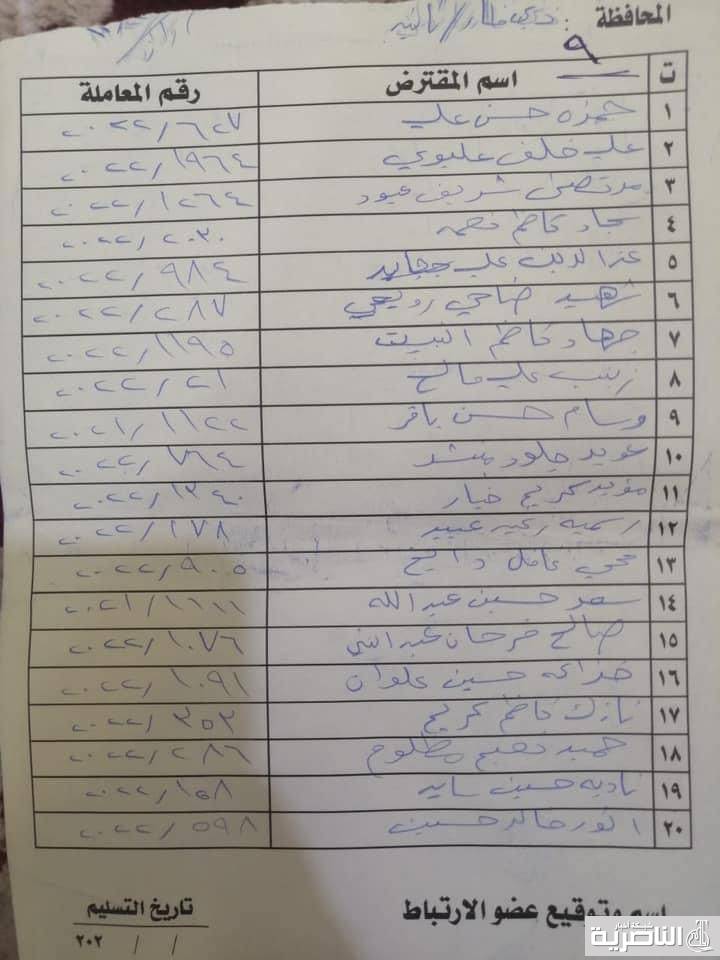 المحافظة : ذي قار / ثانية
٩
ت اسم المقترض رقم المعاملة
١ حمزه حسن علي ٢٠٢٢/٦٢٧
٢ علي خلف عليوي ٢٠٢٢/١٩٦٤
٣ مرتضى شريف عبود ٢٠٢٢/١٢٦٤
٤ سجاد كاظم نعمه ٢٠٢٢/٢٠٣٠
٥ عز الدين علي ٢٠٢٢/٩٨٤
٦ شهيد ضاحي رويعي ٢٠٢٢/٢٨٧
٧ جهاد كاظم ٢٠٢٢/١١٩٥
٨ زينب علي فالح ٢٠٢٢/٢١
٩ وسام حسن باقر ٢٠٢١/١١٢٢
١٠ عويد جلود منشد ٢٠٢٢/٧٦٤
١١ مؤيد كريم خيار ٢٠٢٢/١٣٤٠
١٢ رسميه زغير عبيد ٢٠٢٢/١٧٨
١٣ عامل دايخ ٢٠٢٢/٩٠٥
١٤ سعد حسين عبد الله ٢٠٢١/١٦١١
١٥ صالح فرحان عبد النبي ٢٠٢٢/١٠٧٦
١٦ حسين علوان ٢٠٢٢/١٠٩١
١٧ نازك كاظم كريم ٢٠٢٢/٣٥٣
١٨ حميد مظلوم ٢٠٢٢/٢٨٦
١٩ ناديه حسين ساير ٢٠٢٢/١٥٨
٢٠ انور خالد حسين ٢٠٢٢/٥٩٨
اسم وتوقيع عضو الارتباط تاريخ التسليم
/ / ٢٠٢
شبكة أخبار
الناصرية